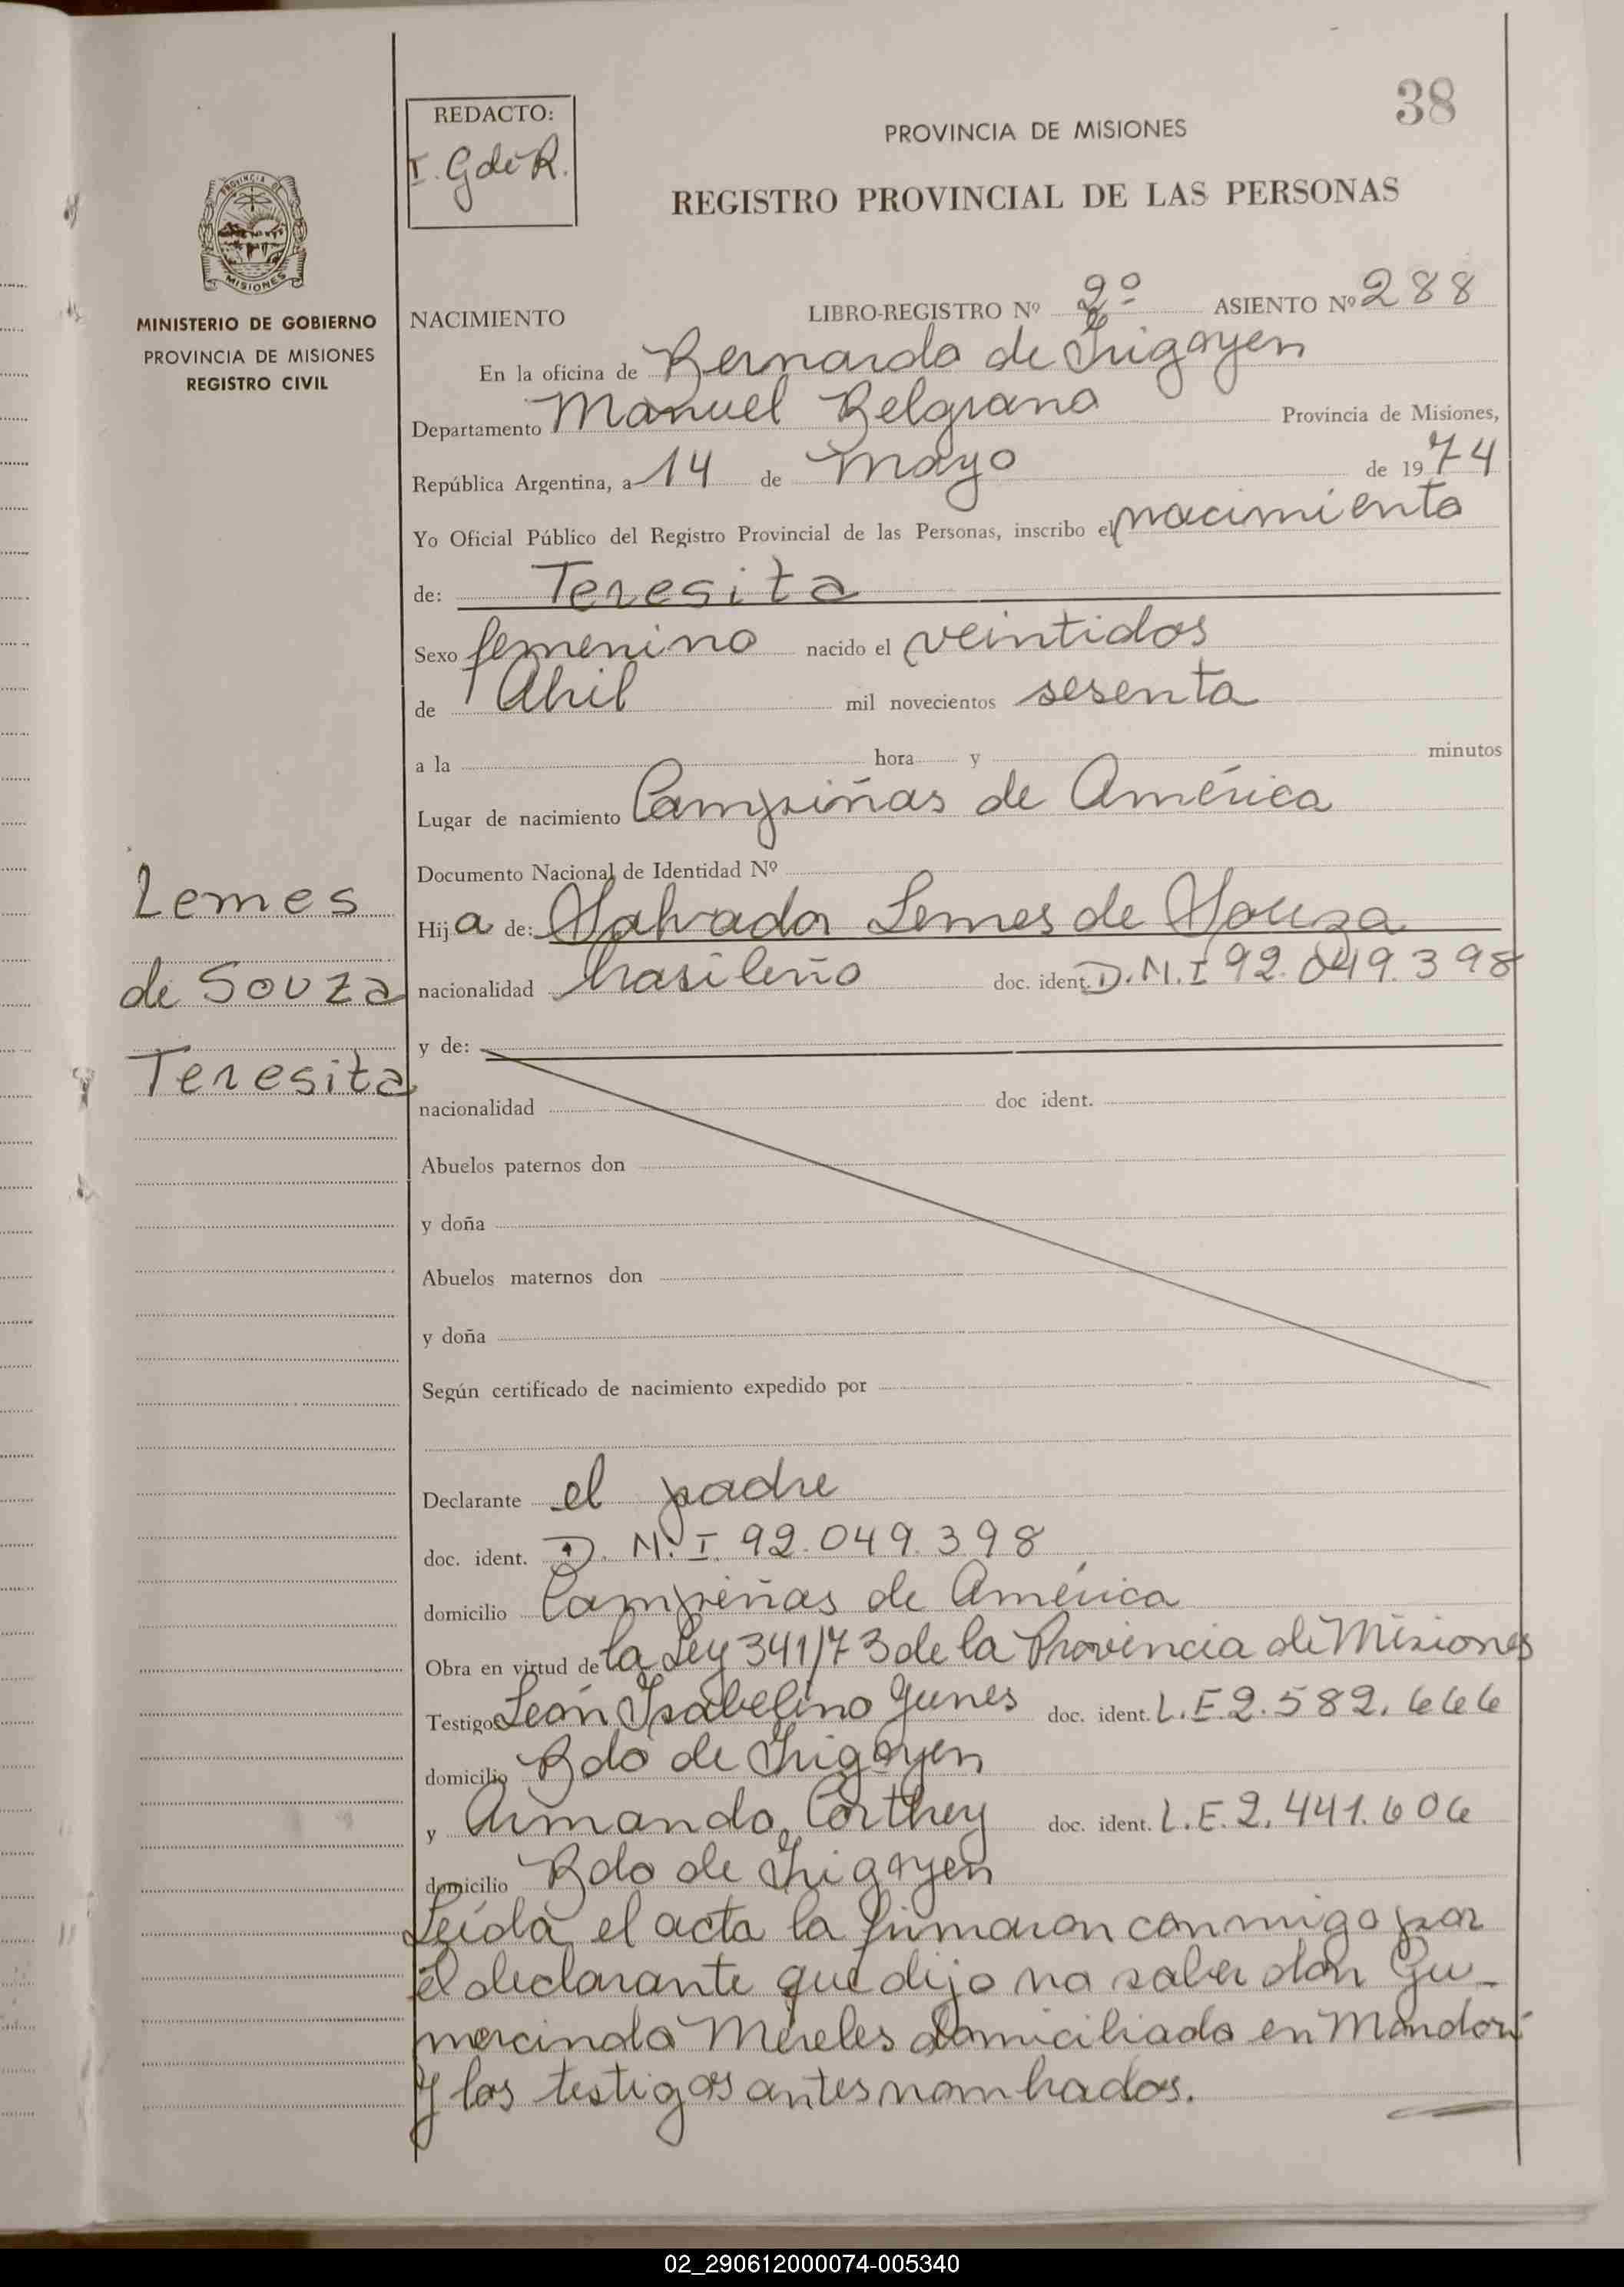 38
REDACTO:
I. G de R.
PROVINCIA DE MISIONES
REGISTRO PROVINCIAL DE LAS PERSONAS
PROVINCIA DE
MISIONES
MINISTERIO DE GOBIERNO
PROVINCIA DE MISIONES
REGISTRO CIVIL
NACIMIENTO LIBRO-REGISTRO Nº 2º ASIENTO Nº 288
En la oficina de Bernardo de Irigoyen
Departamento Manuel Belgrano Provincia de Misiones,
República Argentina, a 14 de Mayo de 1974
Yo Oficial Público del Registro Provincial de las Personas, inscribo el nacimiento
de: Teresita
Sexo femenino nacido el veintidos
de Abril mil novecientos sesenta
a la hora y minutos
Lugar de nacimiento Campiñas de América
Documento Nacional de Identidad Nº
Lemes
de Souza
Teresita
Hija de: Salvador Lemes de Souza
nacionalidad brasileño doc. ident. D.N.I 92.049.398
y de:
nacionalidad doc ident.
Abuelos paternos don
y doña
Abuelos maternos don
y doña
Según certificado de nacimiento expedido por
Declarante el padre
doc. ident. D.N.I. 92.049.398
domicilio Campiñas de América
Obra en virtud de la Ley 341/73 de la Provincia de Misiones
Testigos León Isabelino Yunes doc. ident. L.E.2.582.666
domicilio Bdo de Irigoyen
y Armando Corthey doc. ident. L.E.2.441.606
domicilio Bdo de Irigoyen
Leída el acta la firmaron conmigo por
el declarante que dijo no saber don Gu-
mercindo Méreles domiciliado en Mandorí
y los testigos antes nombrados.
02_290612000074-005340